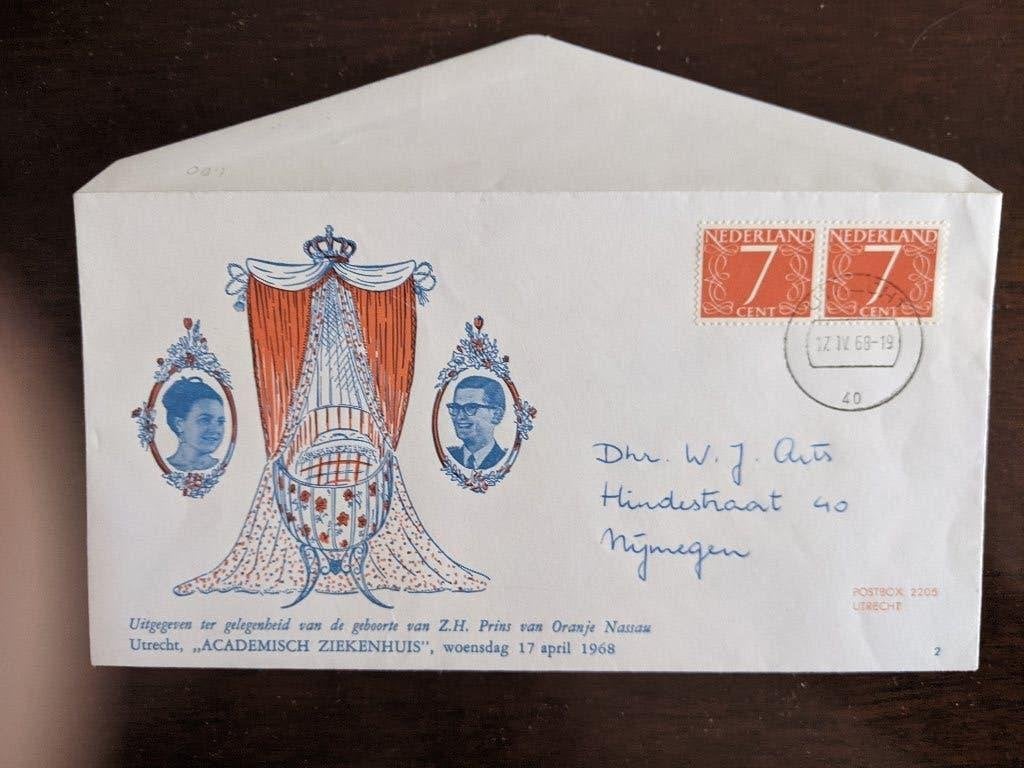 NEDERLAND NEDERLAND
7 7
CENT CENT
17 IV 68-19
40
Dhr. W. J. Arts
Hindestraat 40
Nijmegen
POSTBOX 2205
UTRECHT
Uitgegeven ter gelegenheid van de geboorte van Z.H. Prins van Oranje Nassau
Utrecht, „ACADEMISCH ZIEKENHUIS", woensdag 17 april 1968
2